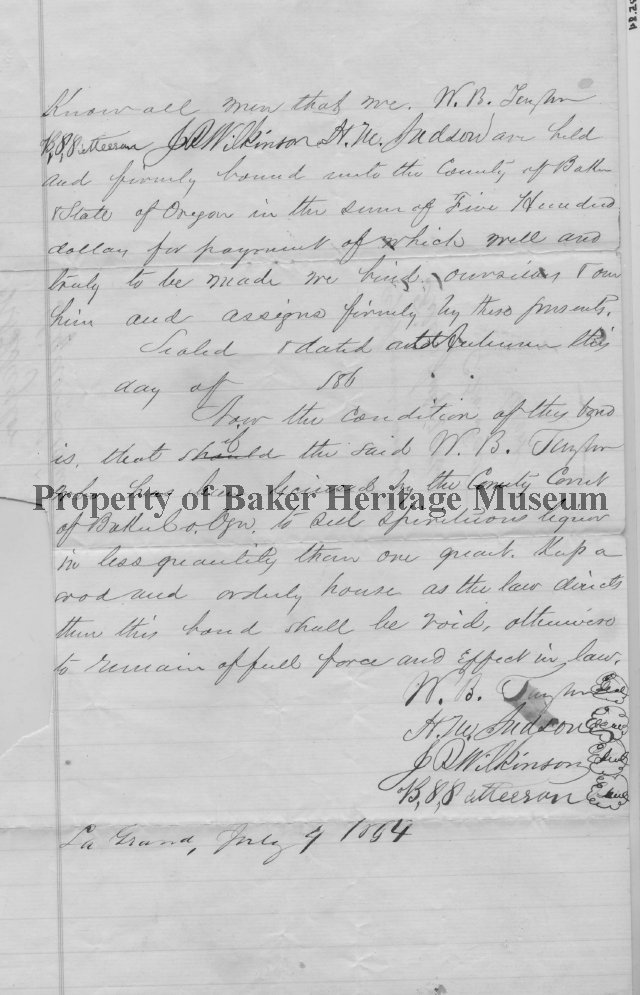 Know all men that we. W. B.
J P Wilkinson H. M. Judson are held
and firmly bound unto the County of Baker
& State of Oregon in the sum of Five Hundred
dollars for payment of which well and
truly to be made we bind, ourselves & our
him and assigns firmly by these presents.
Sealed & dated this
day of 186
Now the condition of this bond
is, that should if the said W. B.
who has been licensed by the County Court
Property of Baker Heritage Museum
of Baker Co. Ogn. to sell spirituous liquor
in less quantity than one quart. Keep a
good and orderly house as the law directs
then this bond shall be void, otherwise
to remain of full force and effect in law.
W. B. Seal
H. M. Judson Seal
J P Wilkinson Seal
Seal
La Grand, July 7 1864